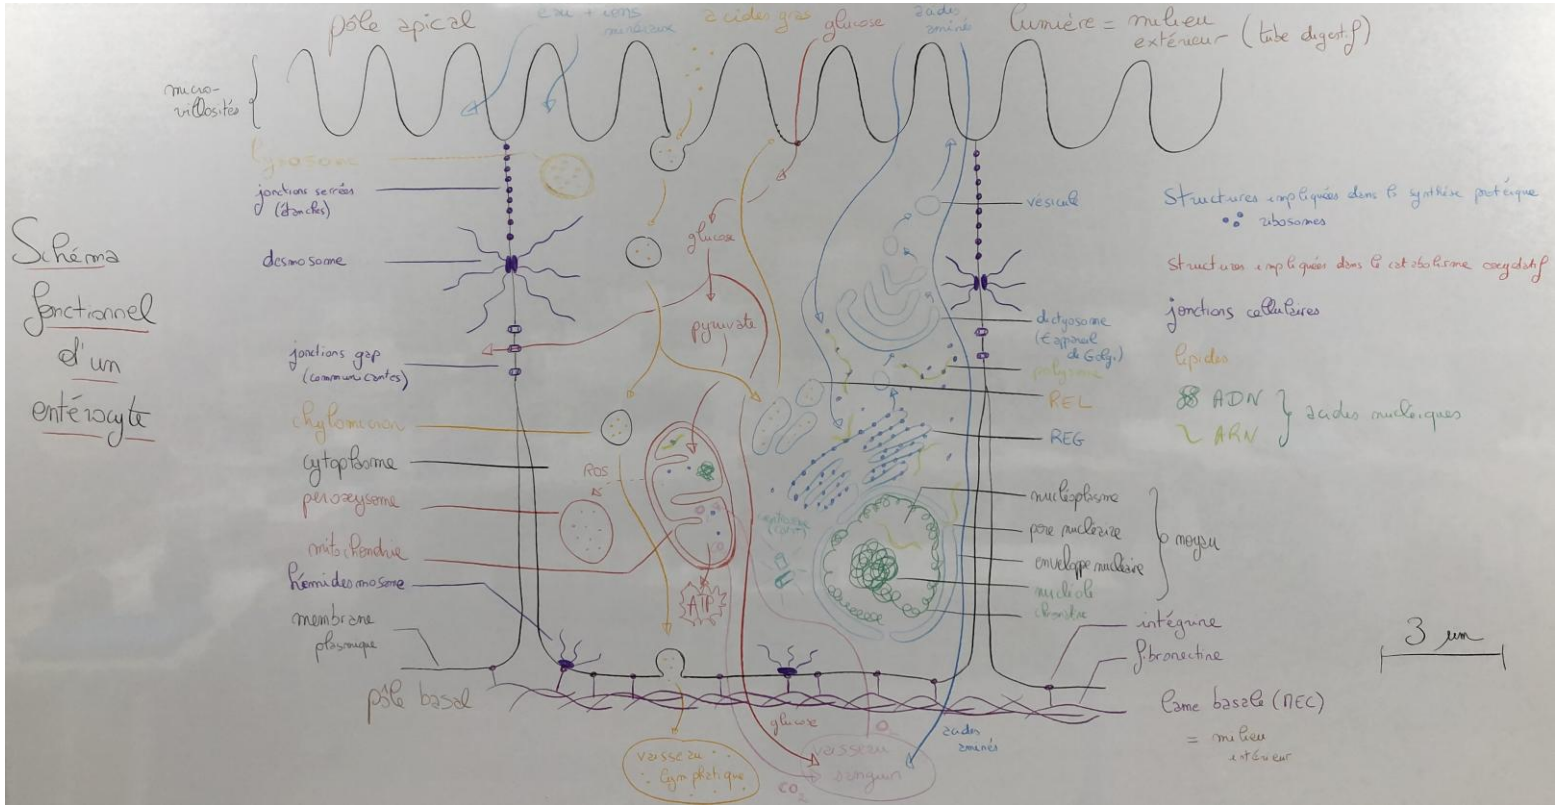 pôle apical
eau + ions
minéraux
acides gras
glucose
acides
aminés
lumière = milieu
extérieur (tube digestif)
micro-
villosités
lysosome
jonctions serrées
(étanches)
desmosome
jonctions gap
(communicantes)
chylomicron
cytoplasme
peroxysome
mitochondrie
hémidesmosome
membrane
plasmique
pôle basal
Schéma
fonctionnel
d'un
entérocyte
glucose
pyruvate
ROS
ATP
centrosome
vésicule
dictyosome
(∈ appareil
de Golgi)
polysome
REL
REG
nucléoplasme
pore nucléaire
enveloppe nucléaire
nucléole
noyau
intégrine
fibronectine
lame basale (MEC)
= milieu
intérieur
Structures impliquées dans la synthèse protéique
ribosomes
Structures impliquées dans le catabolisme oxydatif
jonctions cellulaires
lipides
ADN
ARN
acides nucléiques
3 µm
glucose
O2
acides
aminés
vaisseau
lymphatique
vaisseau
sanguin
CO2